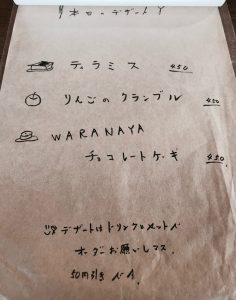 本日のデザート
ティラミス 450
りんごのクランブル 450
WARANAYA
チョコレートケーキ 450
デザートはドリンクとセットで
オーダーお願いしマス.
50円引き